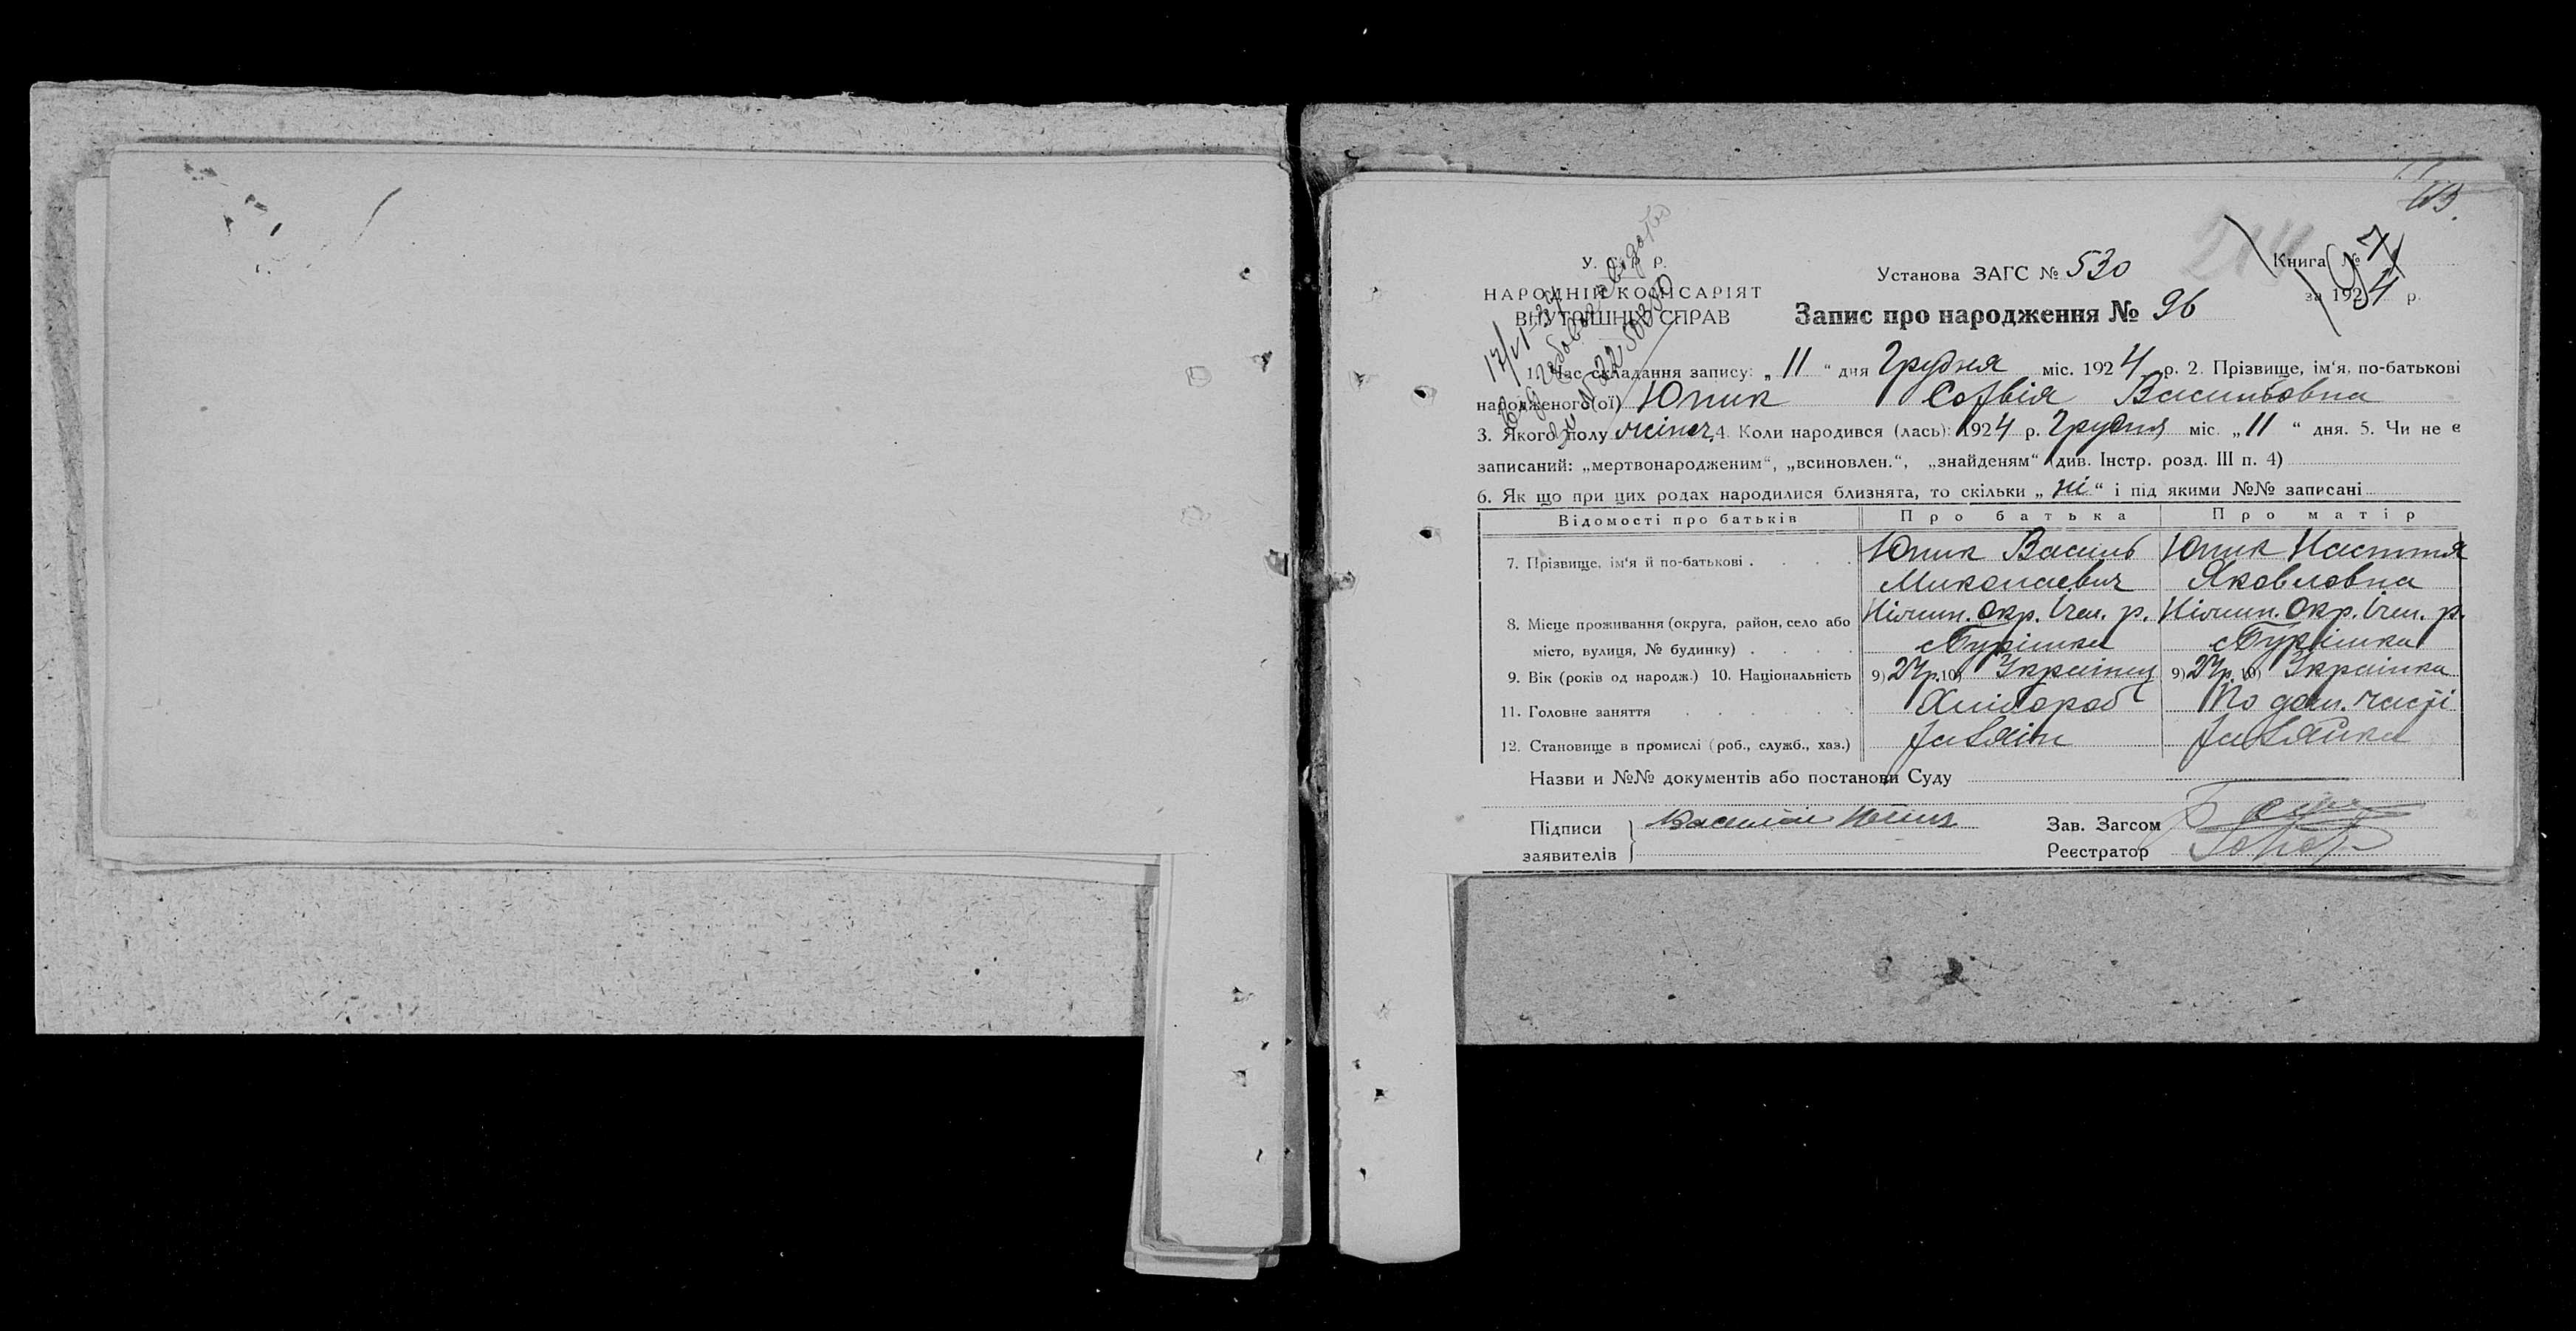 113.
У. С. Р. Р.
НАРОДНІЙ КОМІСАРІЯТ
ВНУТРІШНІХ СПРАВ
Установа ЗАГС № 530
Книга №
за 1924 р.
Запис про народження № 96
1. Час складання запису: „ 11 “ дня Грудня міс. 1924 р. 2. Прізвище, ім'я, по-батькові
народженого(ої) Юпик Софвія Васильовна
3. Якого полу жіноч. 4. Коли народився (лась): 1924 р. Грудня міс. „ 11 “ дня. 5. Чи не є
записаний: „мертвонародженим“, „всиновлен.“, „знайденям“ (див. Інстр. розд. III п. 4)
6. Як що при цих родах народилися близнята, то скільки „ ні “ і під якими №№ записані
Відомості про батьків Про батька Про матір
7. Прізвище, ім'я й по-батькові Юпик Василь Юпик Настття
Миколаевич Яковловна
8. Місце проживання (округа, район, село або Ніжин. Окр. Ічен. р. Ніжин. Окр. Ічен. р.
місто, вулиця, № будинку) с Бурімка с Бурімка
9. Вік (років од народж.) 10. Національність 9) 27р. 10) Українец 9) 27р. 10) Українка
11. Головне заняття Хлібороб По дом. часті
12. Становище в промислі (роб., служб., хаз.) Хазяін Хазяйка
Назви и №№ документів або постанови Суду
Підписи Василій Юпик Зав. Загсом
заявителів Реєстратор